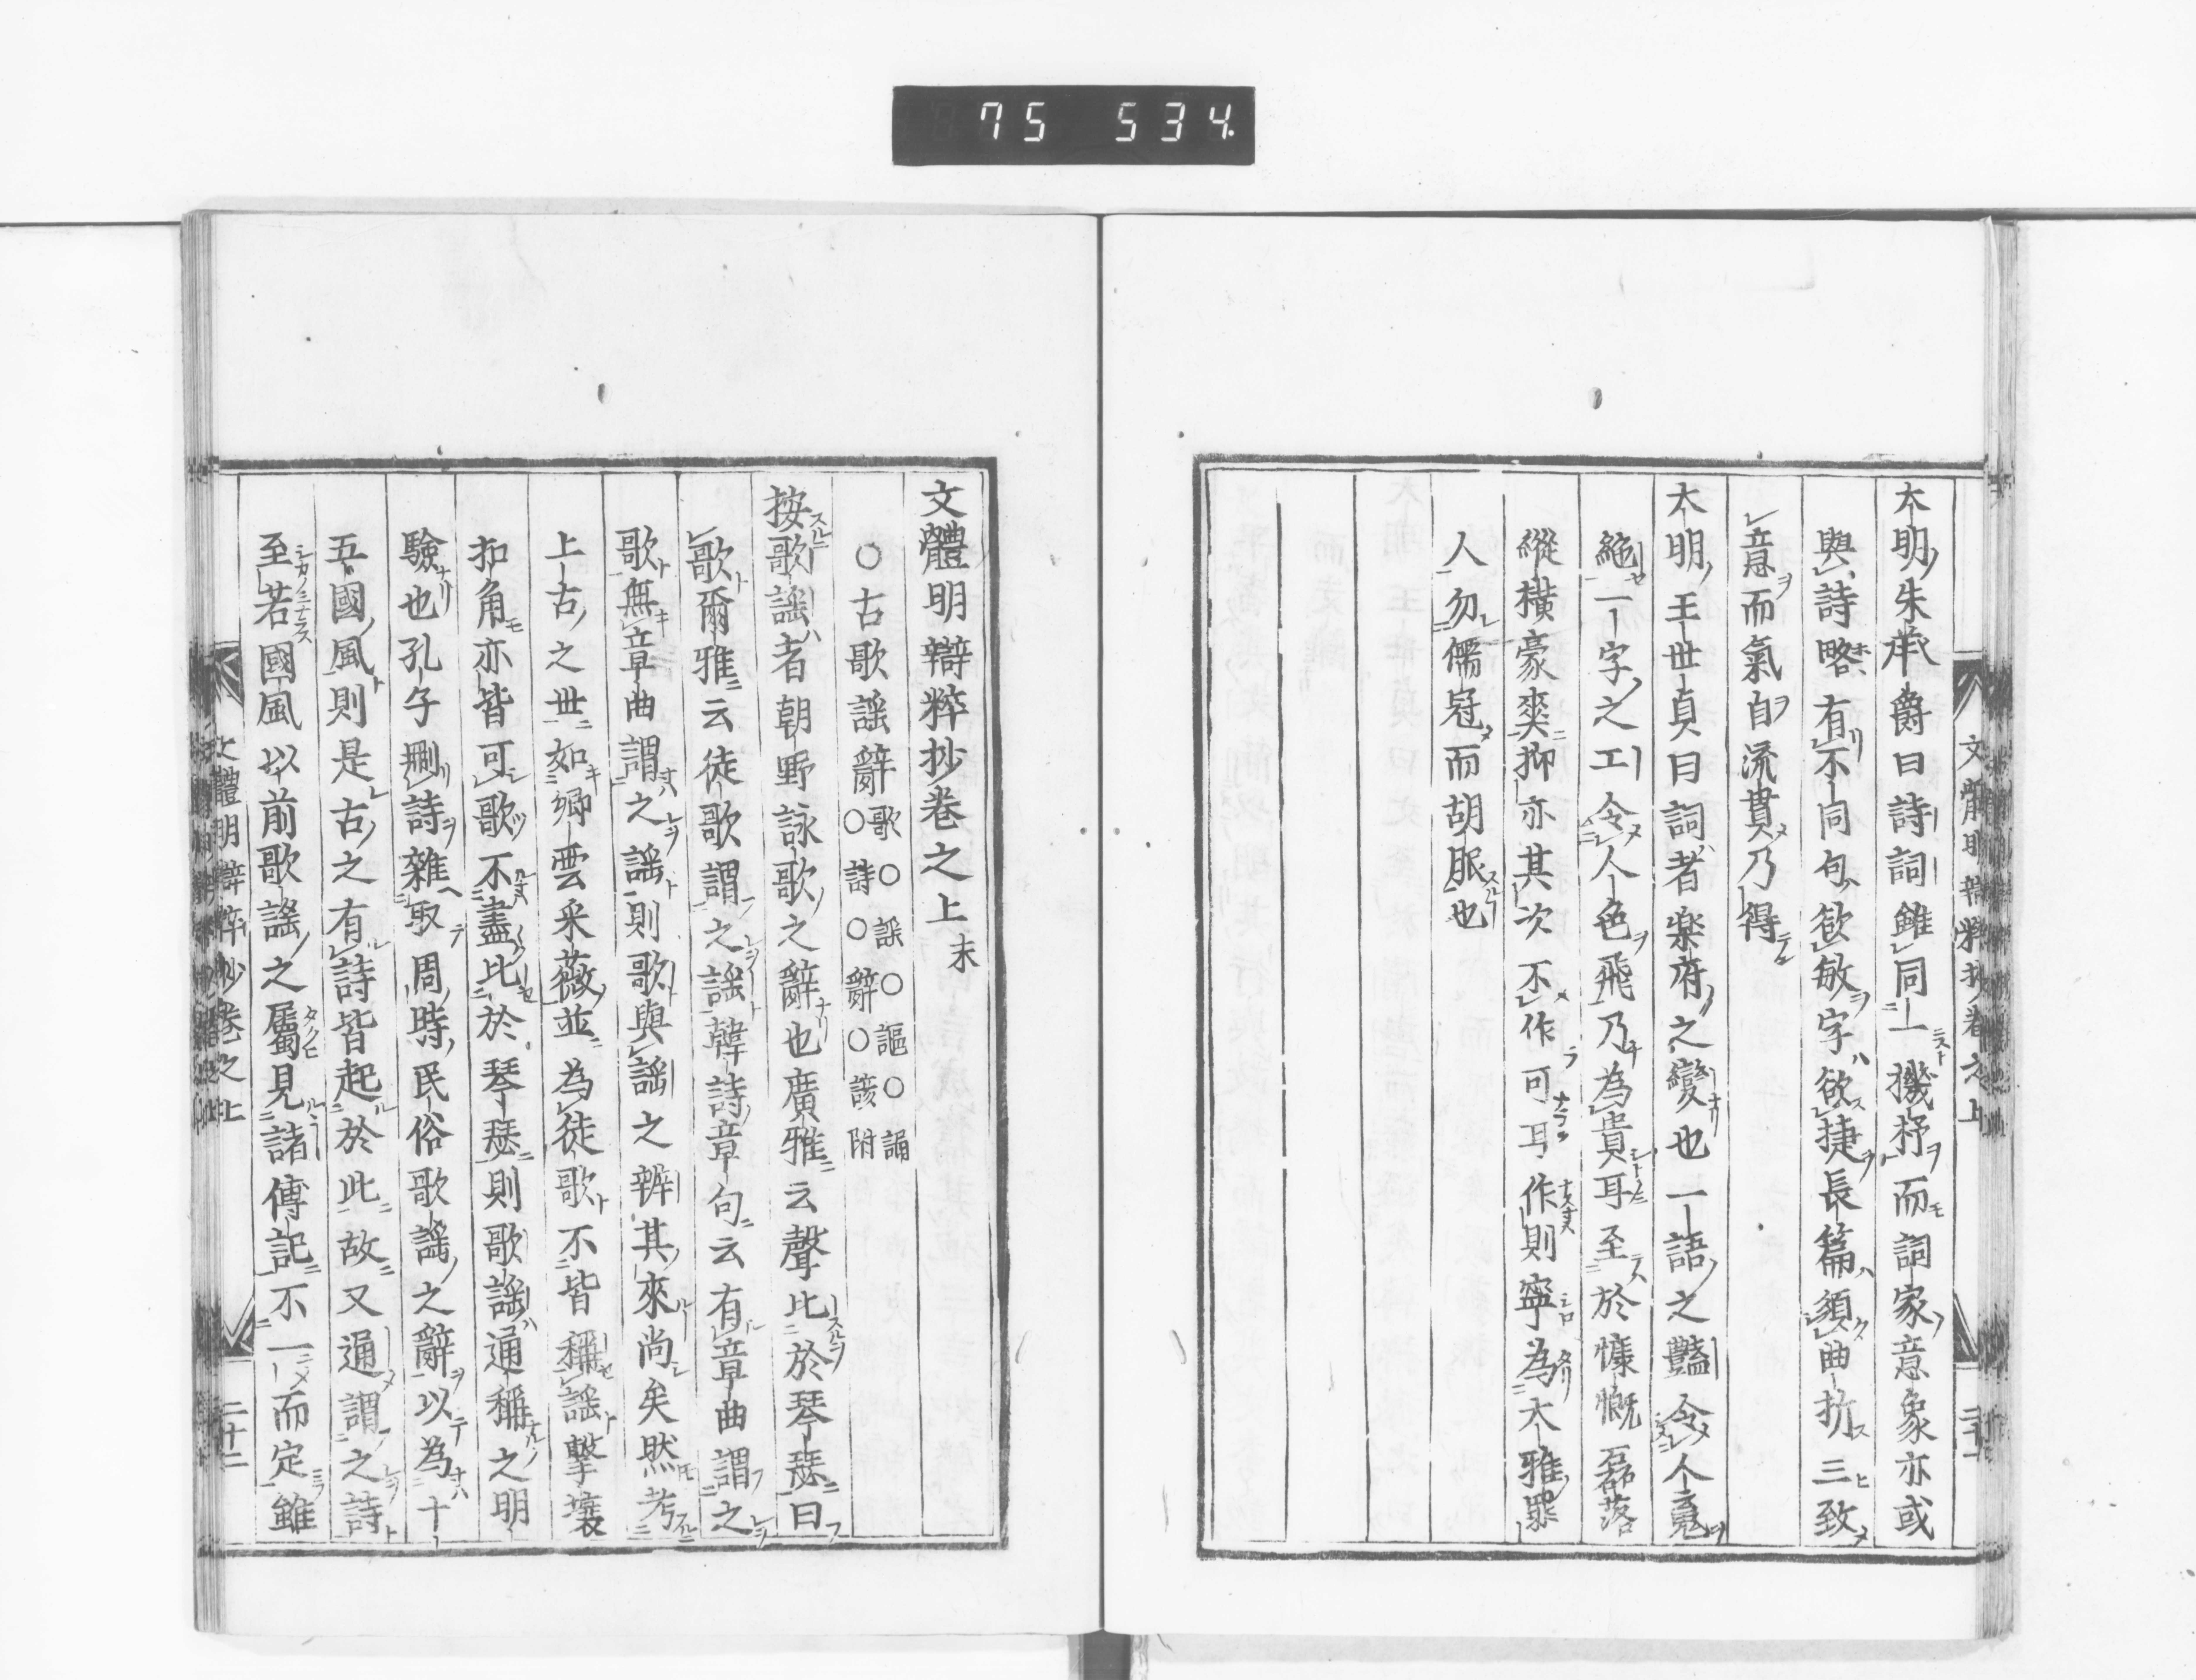 75 534
大明朱承爵曰詩詞雖同一機杼而詞家意象亦或
與詩略有不同句欲敏字欲捷長篇須曲折三致
意而氣自流貫乃得
大明王世貞曰詞者樂府之變也一語之豔令人魂
絕一字之工令人色飛乃為貴耳至於慷慨磊落
縱橫豪爽抑亦其次不作可耳作則寧為大雅罪
人勿儒冠而胡服也
文體明辯粹抄卷之上
文體明辯粹抄卷之上末
○古歌謠辭○歌○謠○謳○誦
○詩○辭○諺附
按歌謠者朝野詠歌之辭也廣雅云聲比於琴瑟曰
歌爾雅云徒歌謂之謠韓詩章句云有章曲謂之
歌無章曲謂之謠則歌與謠之辨其來尚矣然考
上古之世如卿雲采薇並為徒歌不皆稱謠擊壤
扣角亦皆可歌不盡比於琴瑟則歌謠通稱之明
驗也孔子刪詩雜取周時民俗歌謠之辭以為十
五國風則是古之有詩皆起於此故又通謂之詩
至若國風以前歌謠之屬見諸傳記不一而定雖
文體明辯粹抄卷之上
二十二